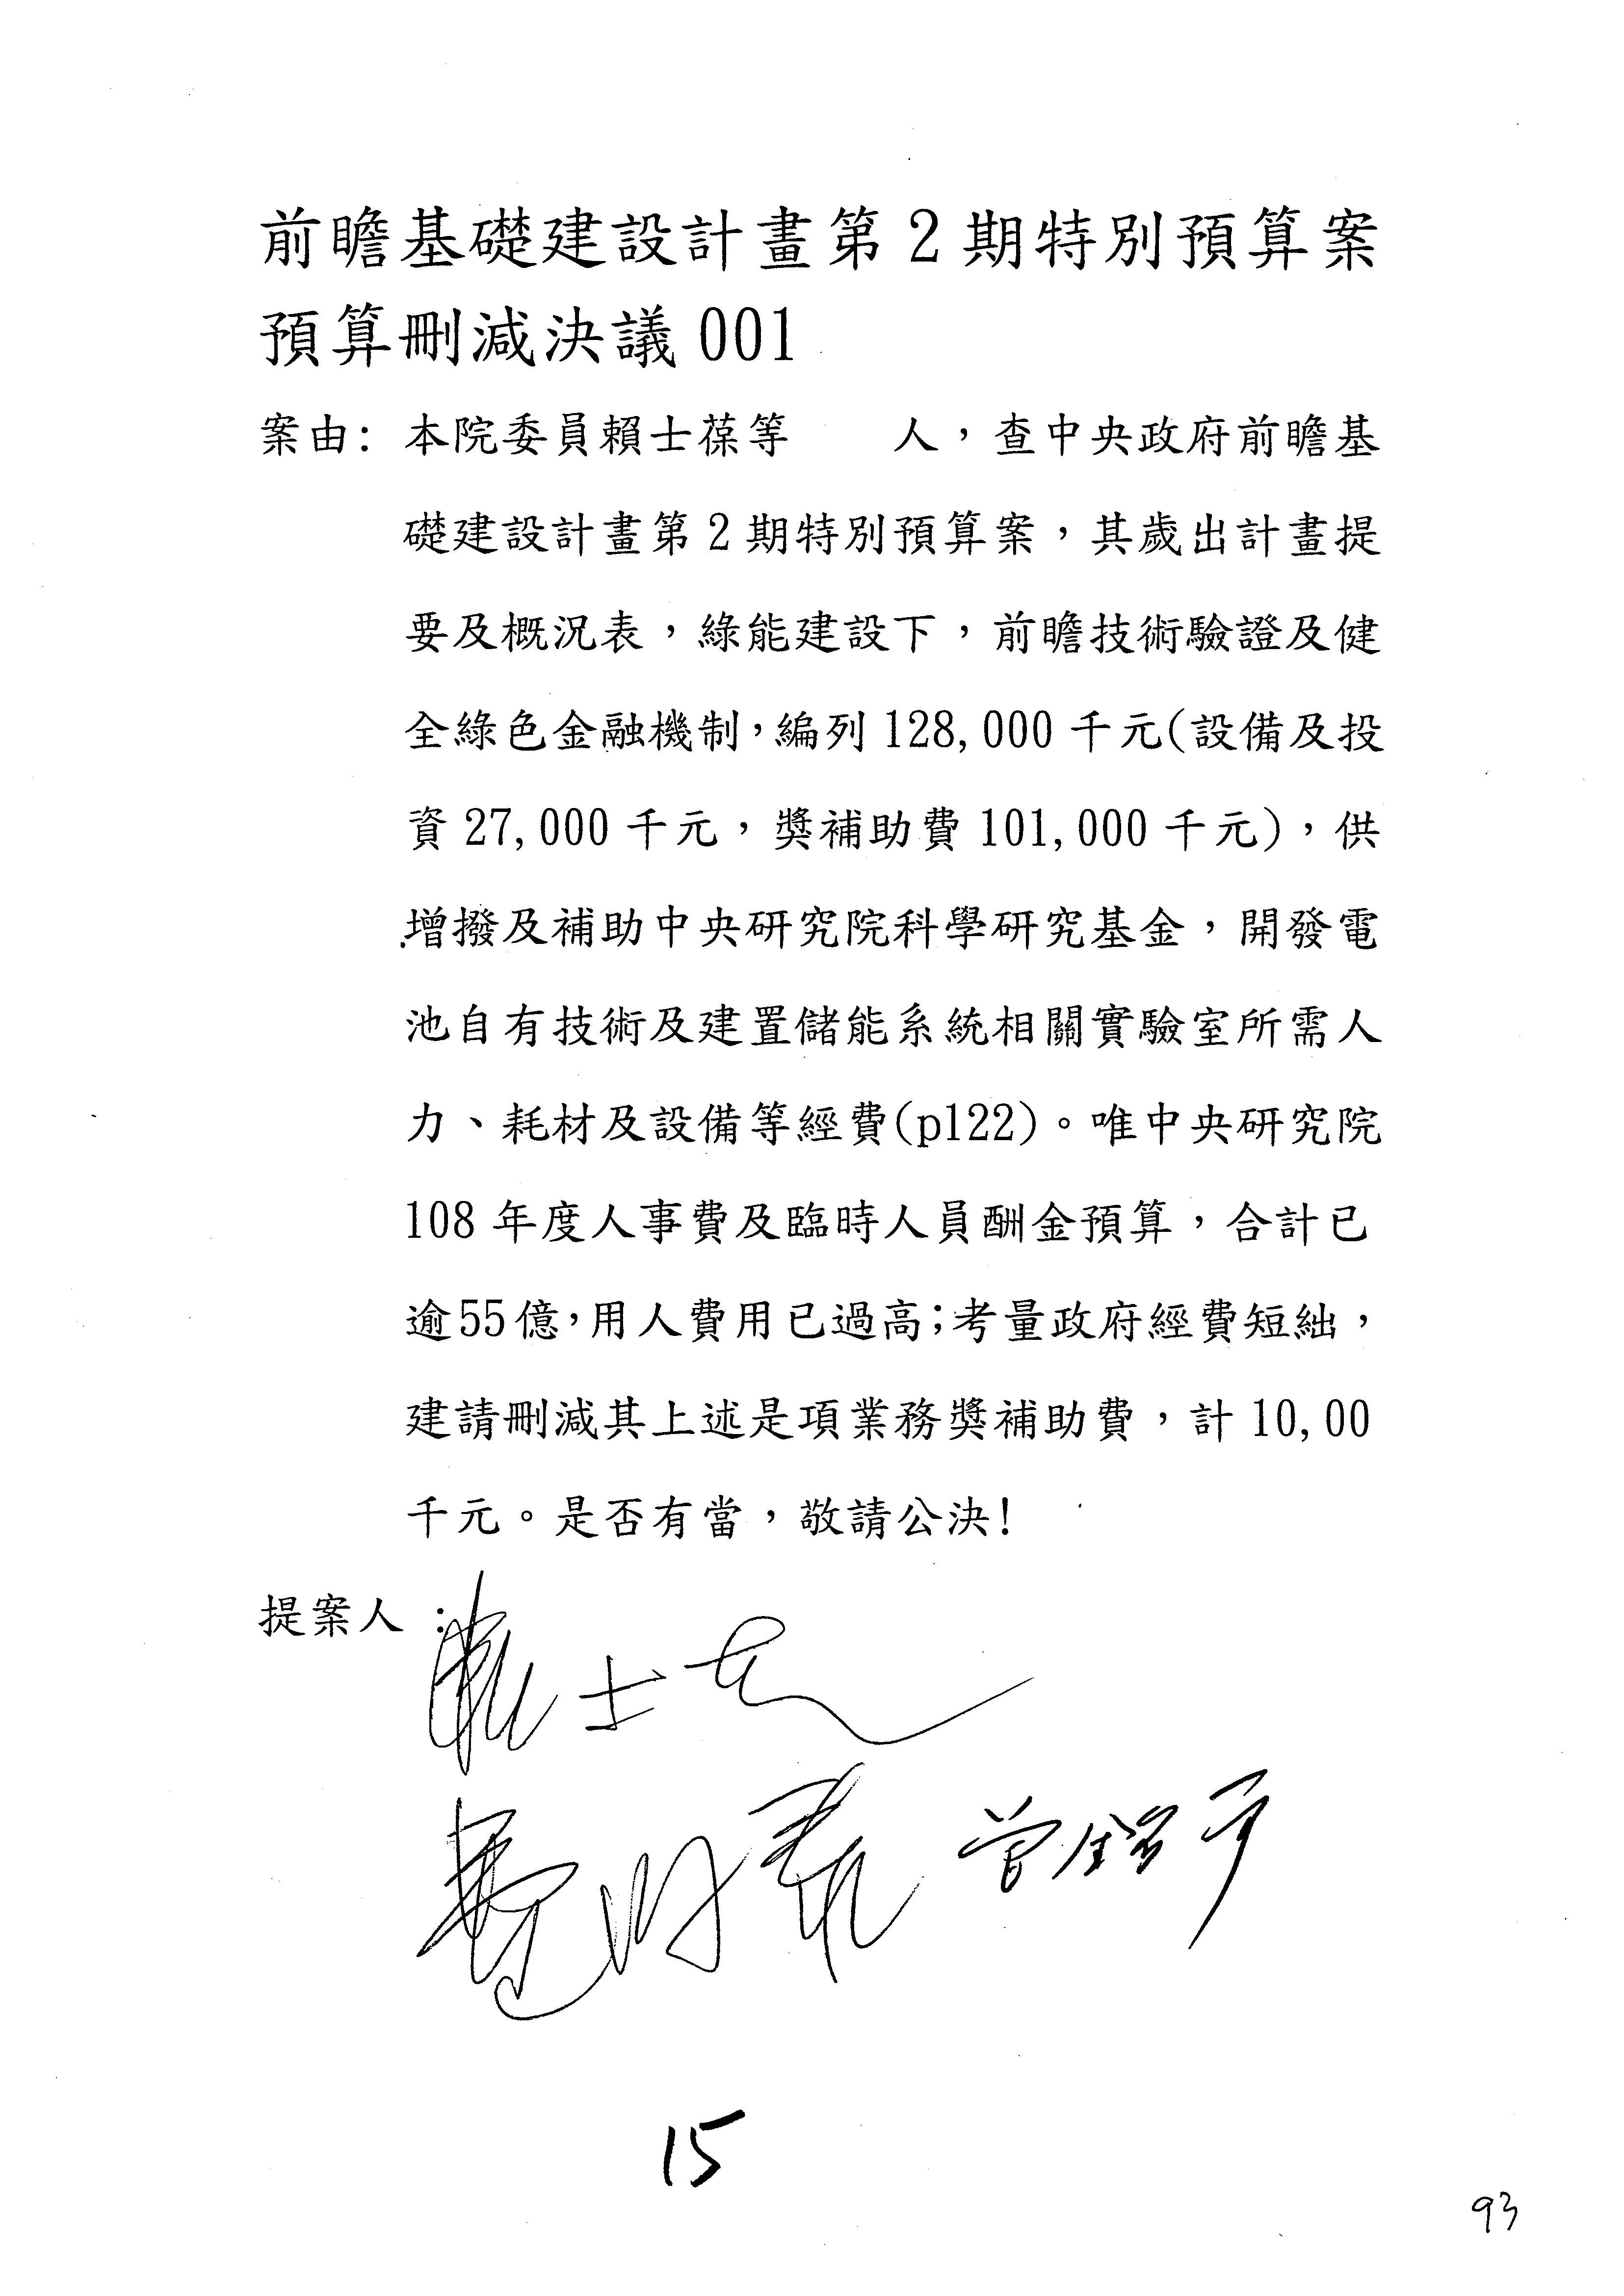 前瞻基礎建設計畫第2期特別預算案
預算刪減決議001
案由：本院委員賴士葆等　　人，查中央政府前瞻基
礎建設計畫第2期特別預算案，其歲出計畫提
要及概況表，綠能建設下，前瞻技術驗證及健
全綠色金融機制，編列128,000千元(設備及投
資27,000千元，獎補助費101,000千元)，供
增撥及補助中央研究院科學研究基金，開發電
池自有技術及建置儲能系統相關實驗室所需人
力、耗材及設備等經費(p122)。唯中央研究院
108年度人事費及臨時人員酬金預算，合計已
逾55億，用人費用已過高；考量政府經費短絀，
建請刪減其上述是項業務獎補助費，計10,00
千元。是否有當，敬請公決！
提案人：
賴士葆
費鴻泰 曾銘宗
15
93